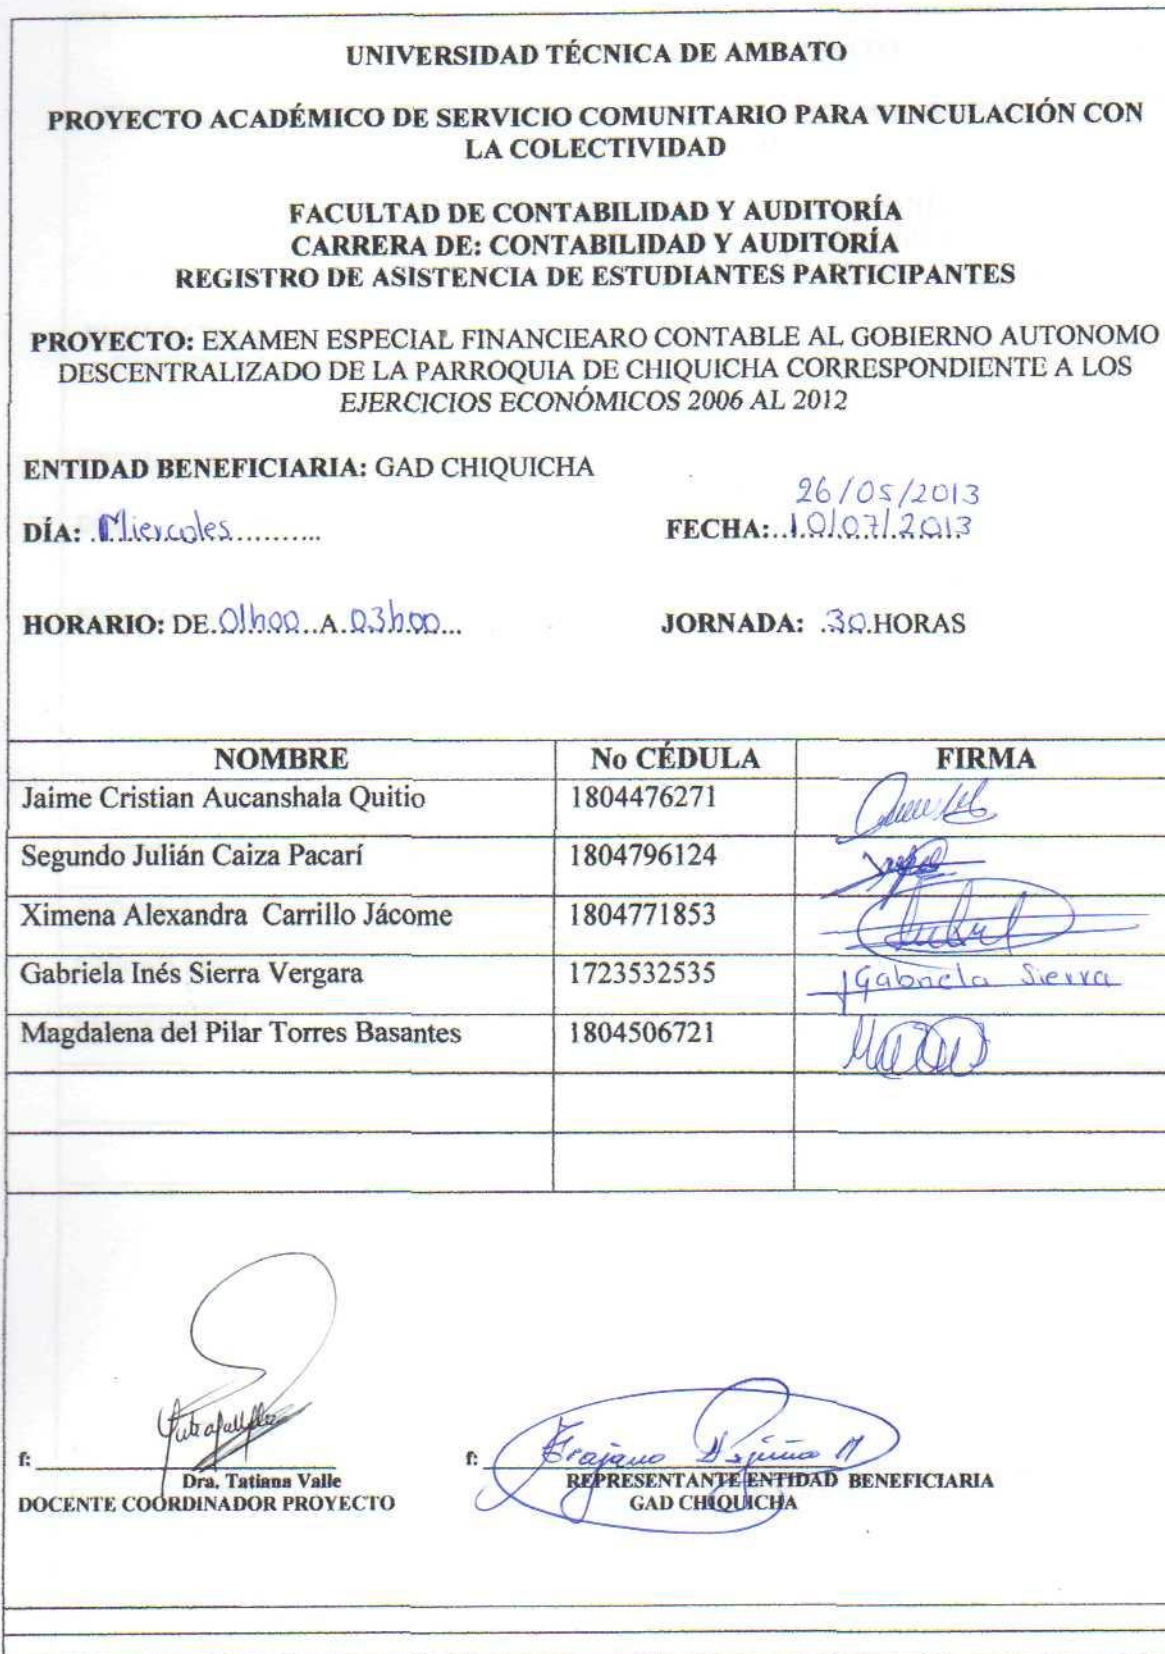 UNIVERSIDAD TÉCNICA DE AMBATO
PROYECTO ACADÉMICO DE SERVICIO COMUNITARIO PARA VINCULACIÓN CON
LA COLECTIVIDAD
FACULTAD DE CONTABILIDAD Y AUDITORÍA
CARRERA DE: CONTABILIDAD Y AUDITORÍA
REGISTRO DE ASISTENCIA DE ESTUDIANTES PARTICIPANTES
PROYECTO: EXAMEN ESPECIAL FINANCIEARO CONTABLE AL GOBIERNO AUTONOMO
DESCENTRALIZADO DE LA PARROQUIA DE CHIQUICHA CORRESPONDIENTE A LOS
EJERCICIOS ECONÓMICOS 2006 AL 2012
ENTIDAD BENEFICIARIA: GAD CHIQUICHA
26/05/2013
DÍA: .Miercoles.......... FECHA:..10/07/2013
HORARIO: DE.01h00..A.03h00... JORNADA: .30.HORAS
NOMBRE No CÉDULA FIRMA
Jaime Cristian Aucanshala Quitio 1804476271
Segundo Julián Caiza Pacarí 1804796124
Ximena Alexandra Carrillo Jácome 1804771853
Gabriela Inés Sierra Vergara 1723532535 Gabriela Sierra
Magdalena del Pilar Torres Basantes 1804506721
f: f: Trajano
Dra. Tatiana Valle REPRESENTANTE ENTIDAD BENEFICIARIA
DOCENTE COORDINADOR PROYECTO GAD CHIQUICHA